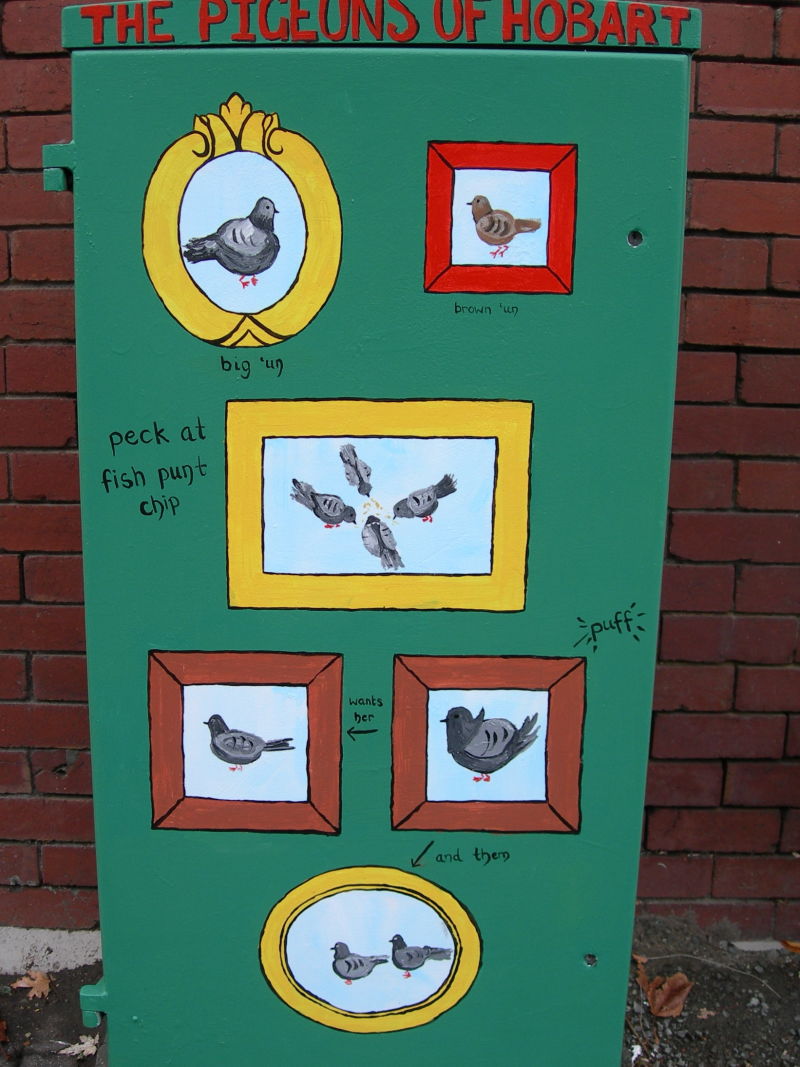 THE PIGEONS OF HOBART
big 'un
brown 'un
peck at
fish punt
chip
puff
wants
her
and them